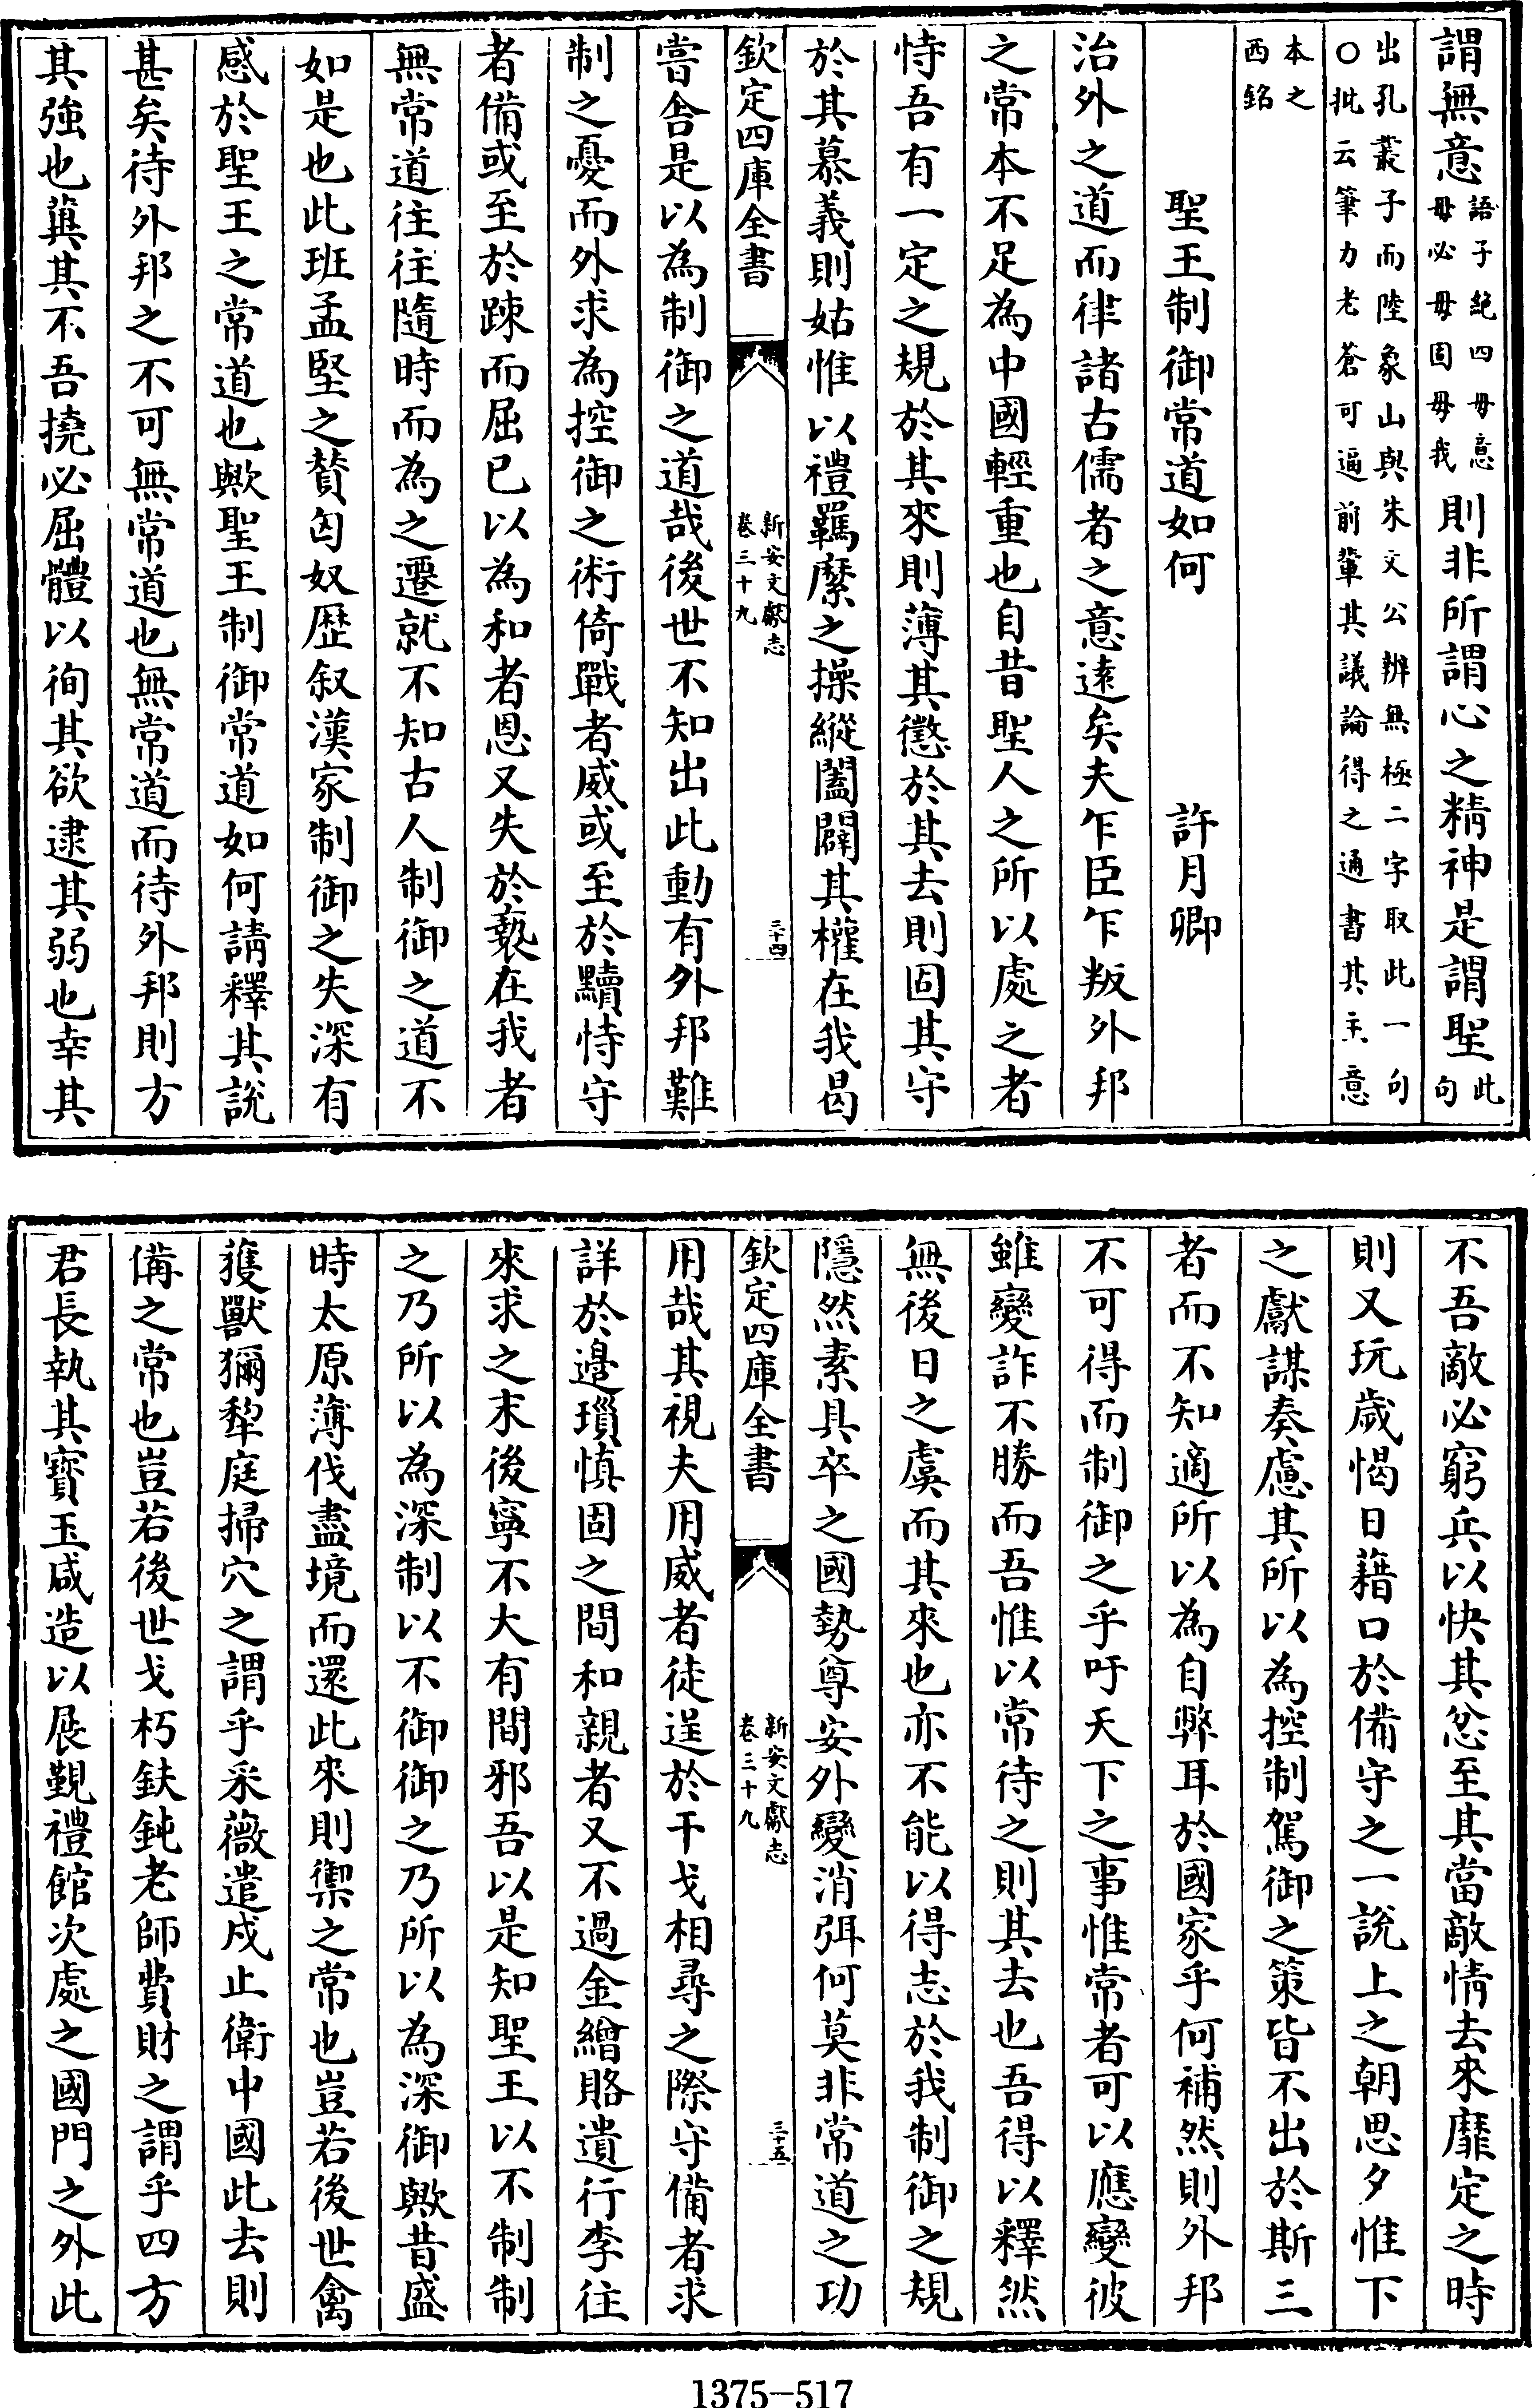 謂無意語子絶四毋意毋必毋固毋我則非所謂心之精神是謂聖此句
出孔叢子而陸象山與朱文公辨無極二字取此一句○批云筆力老蒼可逼前輩其議論得之通書其主意
本之西銘
聖王制御常道如何　許月卿
治外之道而律諸古儒者之意遠矣夫乍臣乍叛外邦
之常本不足為中國輕重也自昔聖人之所以處之者
恃吾有一定之規於其來則薄其懲於其去則固其守
於其慕義則姑惟以禮羈縻之操縱闔闢其權在我曷
欽定四庫全書
新安文獻志
卷三十九
三十四
嘗舍是以為制御之道哉後世不知出此動有外邦難
制之憂而外求為控御之術倚戰者威或至於黷恃守
者備或至於踈而屈已以為和者恩又失於褻在我者
無常道往往隨時而為之遷就不知古人制御之道不
如是也此班孟堅之賛匈奴歴叙漢家制御之失深有
感於聖王之常道也歟聖王制御常道如何請釋其說
甚矣待外邦之不可無常道也無常道而待外邦則方
其強也冀其不吾撓必屈體以徇其欲逮其弱也幸其
不吾敵必窮兵以快其忿至其當敵情去來靡定之時
則又玩歲愒日藉口於備守之一說上之朝思夕惟下
之獻謀奏慮其所以為控制駕御之策皆不出於斯三
者而不知適所以為自弊耳於國家乎何補然則外邦
不可得而制御之乎吁天下之事惟常者可以應變彼
雖變詐不勝而吾惟以常待之則其去也吾得以釋然
無後日之虞而其來也亦不能以得志於我制御之規
隱然素具卒之國勢尊安外變消弭何莫非常道之功
欽定四庫全書
新安文獻志
卷三十九
三十五
用哉其視夫用威者徒逞於干戈相尋之際守備者求
詳於邊瑣慎固之間和親者又不過金繒賂遺行李往
來求之末後寧不大有間邪吾以是知聖王以不制制
之乃所以為深制以不御御之乃所以為深御歟昔盛
時太原薄伐盡境而還此來則禦之常也豈若後世禽
獲獸獮犂庭掃穴之謂乎采薇遣戍止衛中國此去則
備之常也豈若後世戈朽鈇鈍老師費財之謂乎四方
君長執其寳玉咸造以展覲禮館次處之國門之外此
1375—517